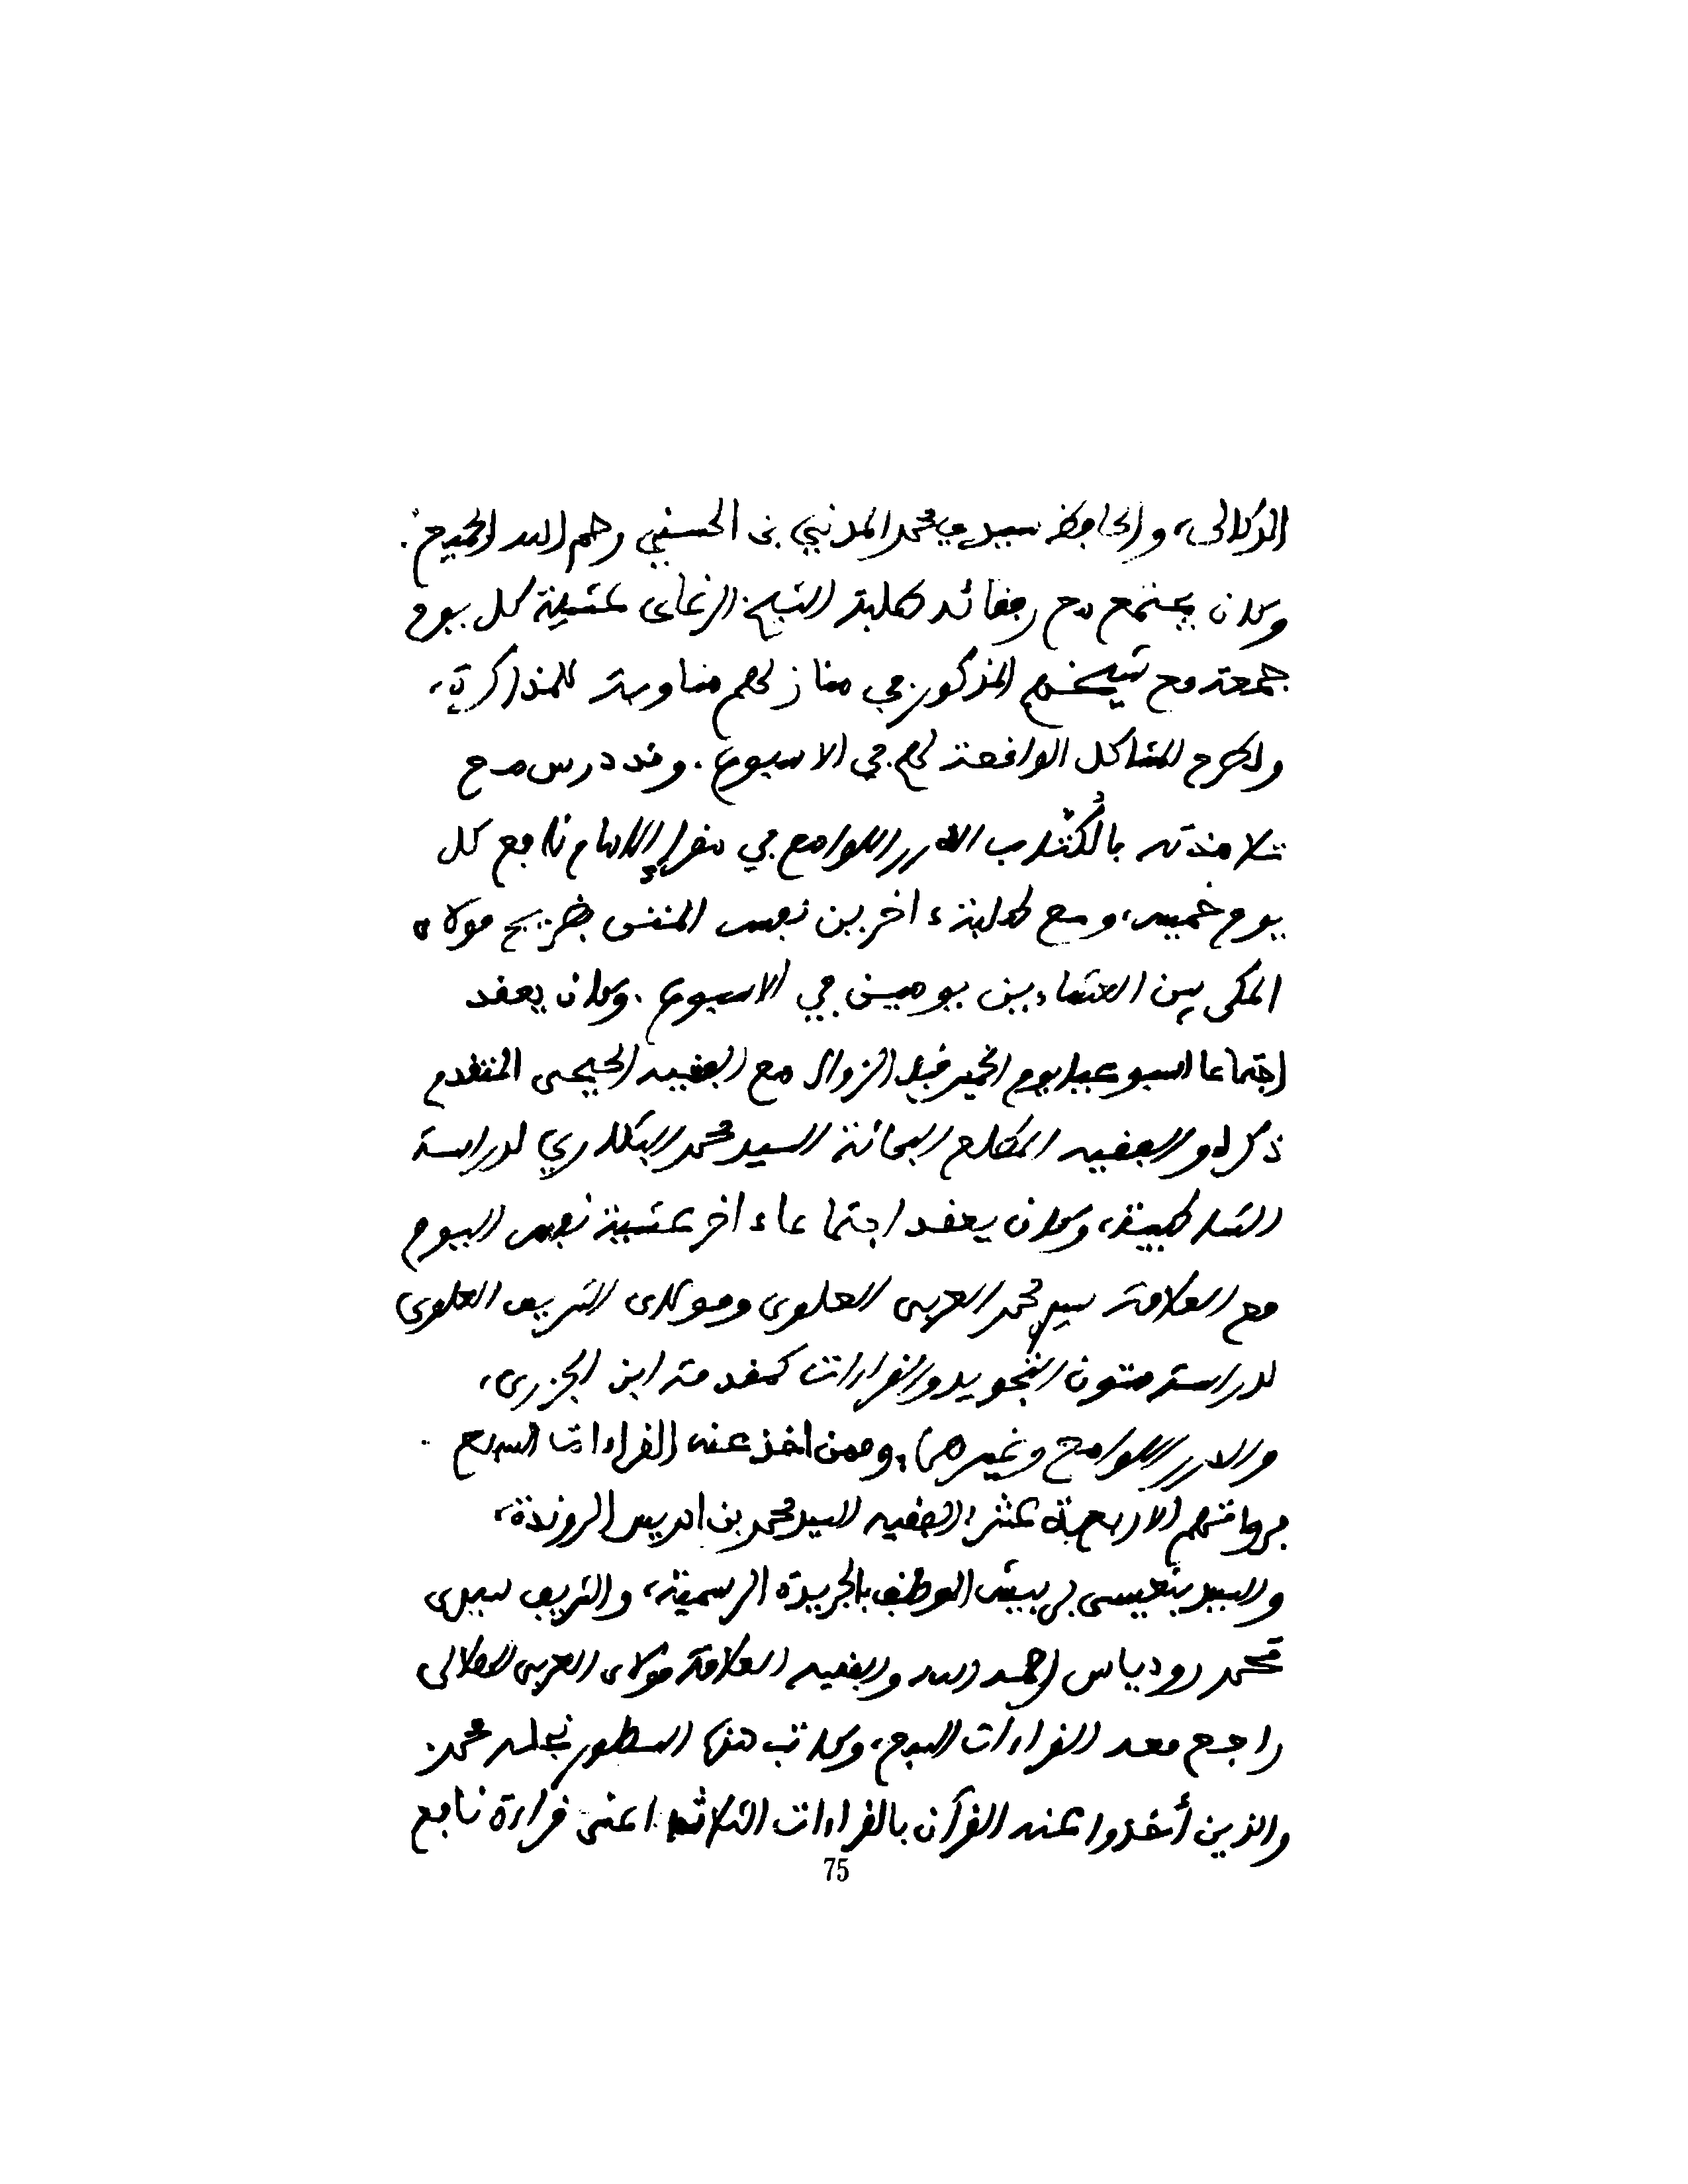 الدكالى، والحافظ سيدي محمد المدني بن الحسني رحم الله الجميع.
وكان يجتمع مع رفقائه طلبة الشيخ الرغاى عشية كل يوم
جمعة مع شيخهم المذكور في منازلهم مناوبة للمذاكرة،
ولطرح المشاكل الواقعة لهم في الاسبوع. وقد درس مع
تلامذته بالكُتّاب الدرر اللوامع في مقرإ الامام نافع كل
يوم خميس، ومع طلبة ءاخرين نفس المتن بضريح مولاى
المكى بين العشاءين يومين في الاسبوع. وكان يعقد
اجتماعا اسبوعيا يوم الخميس قبل الزوال مع الفقيه الحيحى المتقدم
ذكره والفقيه المطلع البحاثة السيد محمد البنكاري لدراسة
الشاطبية، وكان يعقد اجتماعا ءاخر عشية نفس اليوم
مع العلامة سيدي محمد العربى العلوى ومولاى الشريف العلوى
لدراسة متون التجويد والقراءات كمقدمة ابن الجزرى،
والدرر اللوامع وغيرهما، وممن اخذ عنه القراءات السبع
برواتهم الاربعة عشر: الفقيه السيد محمد بن ادريس الروندة،
والسيد بنعيسى الموظف بالجريدة الرسمية، والشريف سيدى
محمد رودياس رحمه الله والفقيه العلامة مولاى العربى الهلالى
راجع معه القراءات السبع، وكاتب هذه السطور نجله محمد.
والذين أخذوا عنه القرآن بالقراءات الثلاث: اعنى قراءة نافع
75